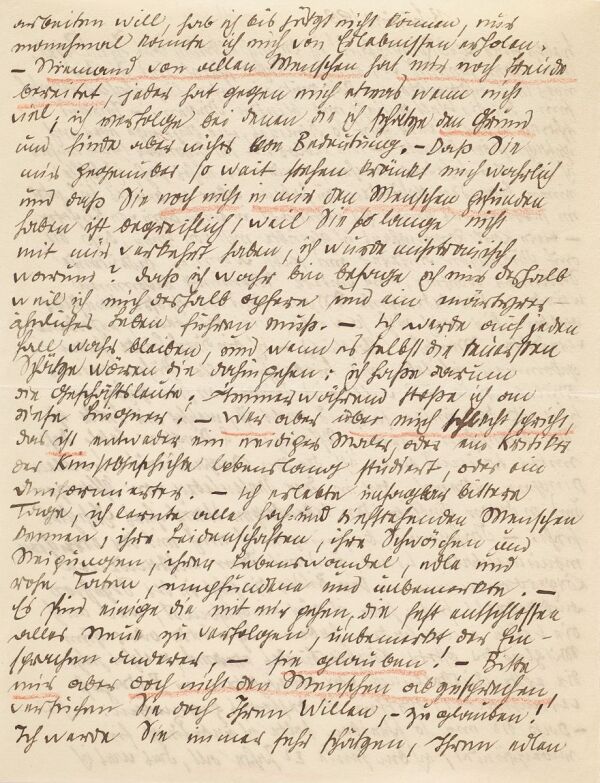 arbeiten will, hab ich bis jetzt nicht können, nur
manchmal konnte ich mich von Erlebnissen erholen.
– Niemand von allen Menschen hat mir noch Freude
bereitet, jeder hat gegen mich etwas wenn nicht
viel; ich verfolge bei denen die ich schätze den Grund
und finde aber nichts von Bedeutung. – Daß Sie
mir gegenüber so weit stehen kränkt mich wahrlich
und daß Sie noch nicht in mir den Menschen gefunden
haben ist begreiflich, weil Sie so lange nicht
mit mir verkehrt haben, ich wurde mistrauisch,
warum? Daß ich wahr bin besage ich mir deshalb
weil ich mich deshalb opfere und ein märtyrer–
ähnliches Leben führen muß. – Ich werde auf jeden
Fall wahr bleiben, und wenn es selbst die teuersten
Schätze wären die dahingehen; ich hasse darum
die Geschäftsleute! Immerwährend stoße ich an
diese Lügner! – Wer aber über mich schlecht spricht,
das ist entweder ein neidiger Maler, oder ein Kritiker
der Kunstgeschichte lebenslang studiert, oder ein
Uniformierter. – Ich erlebte unsagbar bittere
Tage, ich lernte alle hoch- und tiefstehenden Menschen
kennen, ihre Leidenschaften, ihre Schwächen und
Neigungen, ihren Lebenswandel, edle und
rohe Taten, empfundene und unbemerkte. –
Es sind einige die mit mir gehen, die fest entschlossen
alles Neue zu verfolgen, unbemerkt der Ein-
sprachen anderer, – sie glauben! – Bitte
mir aber doch nicht den Menschen absprechen,
versuchen Sie doch Ihren Willen, – zu glauben!
Ich werde Sie immer sehr schätzen, Ihren edlen